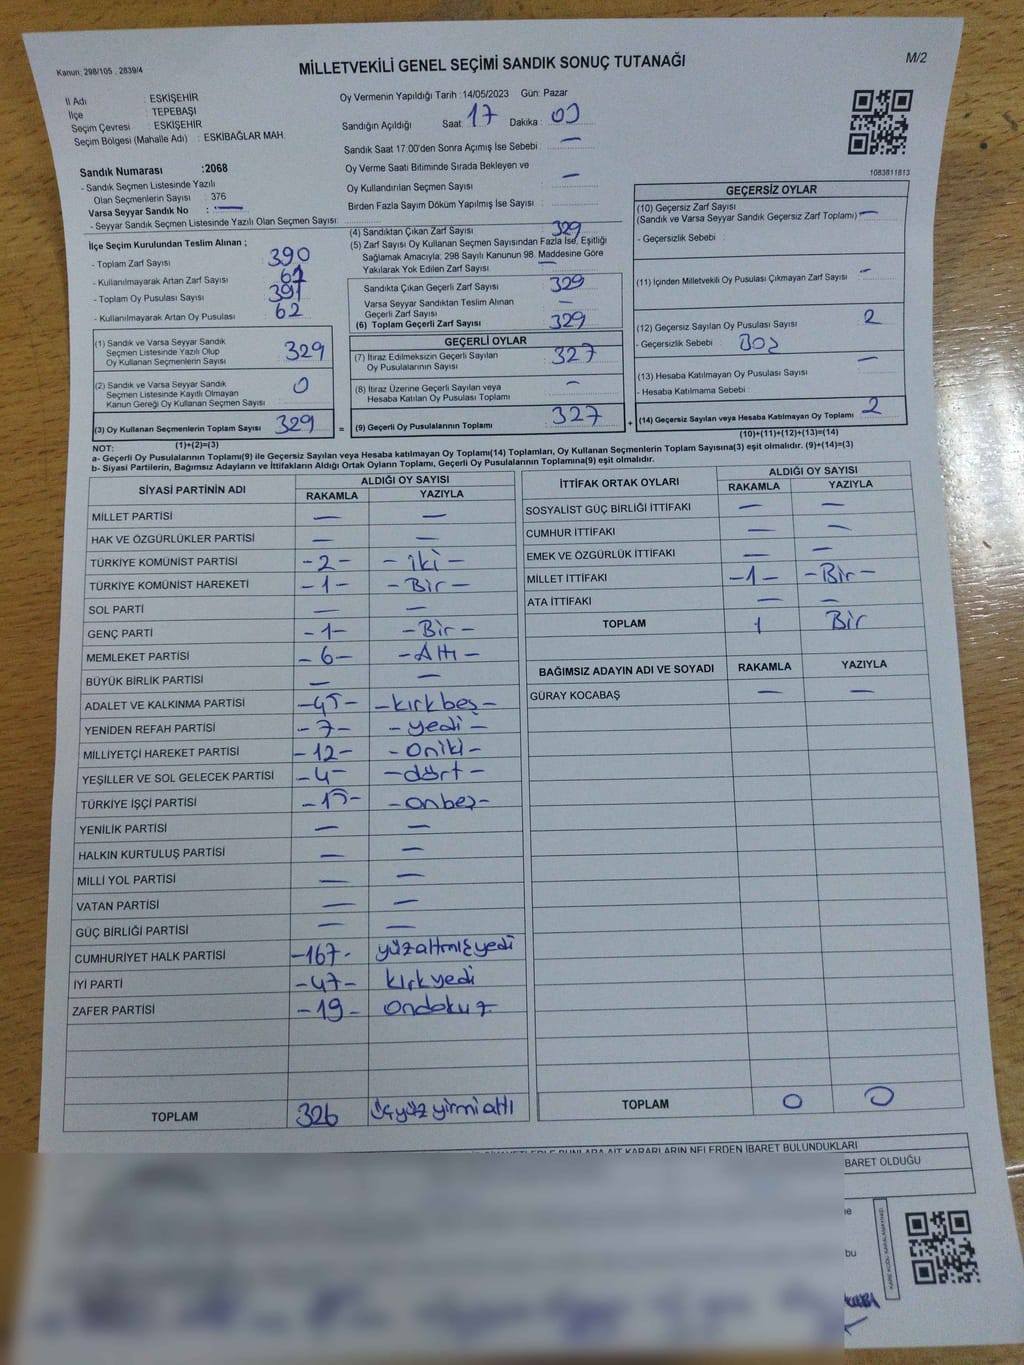 Kanun: 298/105 . 2839/4
MİLLETVEKİLİ GENEL SEÇİMİ SANDIK SONUÇ TUTANAĞI
M/2
İl Adı : ESKİŞEHİR
İlçe : TEPEBAŞI
Seçim Çevresi : ESKİŞEHİR
Seçim Bölgesi (Mahalle Adı) : ESKİBAĞLAR MAH.
Oy Vermenin Yapıldığı Tarih :14/05/2023 Gün: Pazar
Sandığın Açıldığı Saat: 17 Dakika : 00
Sandık Saat 17:00'den Sonra Açımış İse Sebebi : —
Oy Verme Saati Bitiminde Sırada Bekleyen ve
Oy Kullandırılan Seçmen Sayısı : —
Birden Fazla Sayım Döküm Yapılmış İse Sayısı :
1083811813
Sandık Numarası :2068
- Sandık Seçmen Listesinde Yazılı
Olan Seçmenlerin Sayısı : 376
Varsa Seyyar Sandık No : —
- Seyyar Sandık Seçmen Listesinde Yazılı Olan Seçmen Sayısı:
İlçe Seçim Kurulundan Teslim Alınan ;
- Toplam Zarf Sayısı : 390
- Kullanılmayarak Artan Zarf Sayısı : 61
- Toplam Oy Pusulası Sayısı : 391
- Kullanılmayarak Artan Oy Pusulası : 62
(1) Sandık ve Varsa Seyyar Sandık
Seçmen Listesinde Yazılı Olup
Oy Kullanan Seçmenlerin Sayısı : 329
(2) Sandık ve Varsa Seyyar Sandık
Seçmen Listesinde Kayıtlı Olmayan
Kanun Gereği Oy Kullanan Seçmen Sayısı : 0
(3) Oy Kullanan Seçmenlerin Toplam Sayısı : 329
(1)+(2)=(3)
(4) Sandıktan Çıkan Zarf Sayısı : 329
(5) Zarf Sayısı Oy Kullanan Seçmen Sayısından Fazla İse, Eşitliği
Sağlamak Amacıyla; 298 Sayılı Kanunun 98. Maddesine Göre
Yakılarak Yok Edilen Zarf Sayısı : —
Sandıkta Çıkan Geçerli Zarf Sayısı : 329
Varsa Seyyar Sandıktan Teslim Alınan
Geçerli Zarf Sayısı : —
(6) Toplam Geçerli Zarf Sayısı : 329
GEÇERLİ OYLAR
(7) İtiraz Edilmeksizin Geçerli Sayılan
Oy Pusulalarının Sayısı : 327
(8) İtiraz Üzerine Geçerli Sayılan veya
Hesaba Katılan Oy Pusulası Toplamı : —
= (9) Geçerli Oy Pusulalarının Toplamı : 327 +
GEÇERSİZ OYLAR
(10) Geçersiz Zarf Sayısı
(Sandık ve Varsa Seyyar Sandık Geçersiz Zarf Toplamı) : —
- Geçersizlik Sebebi :
(11) İçinden Milletvekili Oy Pusulası Çıkmayan Zarf Sayısı : —
(12) Geçersiz Sayılan Oy Pusulası Sayısı : 2
- Geçersizlik Sebebi : Boş
(13) Hesaba Katılmayan Oy Pusulası Sayısı : —
- Hesaba Katılmama Sebebi :
(14) Geçersiz Sayılan veya Hesaba Katılmayan Oy Toplamı : 2
(10)+(11)+(12)+(13)=(14)
NOT:
a- Geçerli Oy Pusulalarının Toplamı(9) ile Geçersiz Sayılan veya Hesaba katılmayan Oy Toplamı(14) Toplamları, Oy Kullanan Seçmenlerin Toplam Sayısına(3) eşit olmalıdır. (9)+(14)=(3)
b- Siyasi Partilerin, Bağımsız Adayların ve İttifakların Aldığı Ortak Oyların Toplamı, Geçerli Oy Pusulalarının Toplamına(9) eşit olmalıdır.
SİYASİ PARTİNİN ADI ALDIĞI OY SAYISI
RAKAMLA YAZIYLA
MİLLET PARTİSİ — —
HAK VE ÖZGÜRLÜKLER PARTİSİ — —
TÜRKİYE KOMÜNİST PARTİSİ -2- -iki-
TÜRKİYE KOMÜNİST HAREKETİ -1- -Bir-
SOL PARTİ — —
GENÇ PARTİ -1- -Bir-
MEMLEKET PARTİSİ -6- -Altı-
BÜYÜK BİRLİK PARTİSİ — —
ADALET VE KALKINMA PARTİSİ -45- -kırkbeş-
YENİDEN REFAH PARTİSİ -7- -yedi-
MİLLİYETÇİ HAREKET PARTİSİ -12- -oniki-
YEŞİLLER VE SOL GELECEK PARTİSİ -4- -dört-
TÜRKİYE İŞÇİ PARTİSİ -15- -onbeş-
YENİLİK PARTİSİ — —
HALKIN KURTULUŞ PARTİSİ — —
MİLLİ YOL PARTİSİ — —
VATAN PARTİSİ — —
GÜÇ BİRLİĞİ PARTİSİ — —
CUMHURİYET HALK PARTİSİ -167- yüzaltmışyedi
İYİ PARTİ -47- kırkyedi
ZAFER PARTİSİ -19- ondokuz
TOPLAM 326 üçyüzyirmialtı
İTTİFAK ORTAK OYLARI ALDIĞI OY SAYISI
RAKAMLA YAZIYLA
SOSYALİST GÜÇ BİRLİĞİ İTTİFAKI — —
CUMHUR İTTİFAKI — —
EMEK VE ÖZGÜRLÜK İTTİFAKI — —
MİLLET İTTİFAKI -1- -Bir-
ATA İTTİFAKI — —
TOPLAM 1 Bir
BAĞIMSIZ ADAYIN ADI VE SOYADI RAKAMLA YAZIYLA
GÜRAY KOCABAŞ — —
TOPLAM 0 0
KARARLARIN NELERDEN İBARET BULUNDUKLARI
BARET OLDUĞU
bu